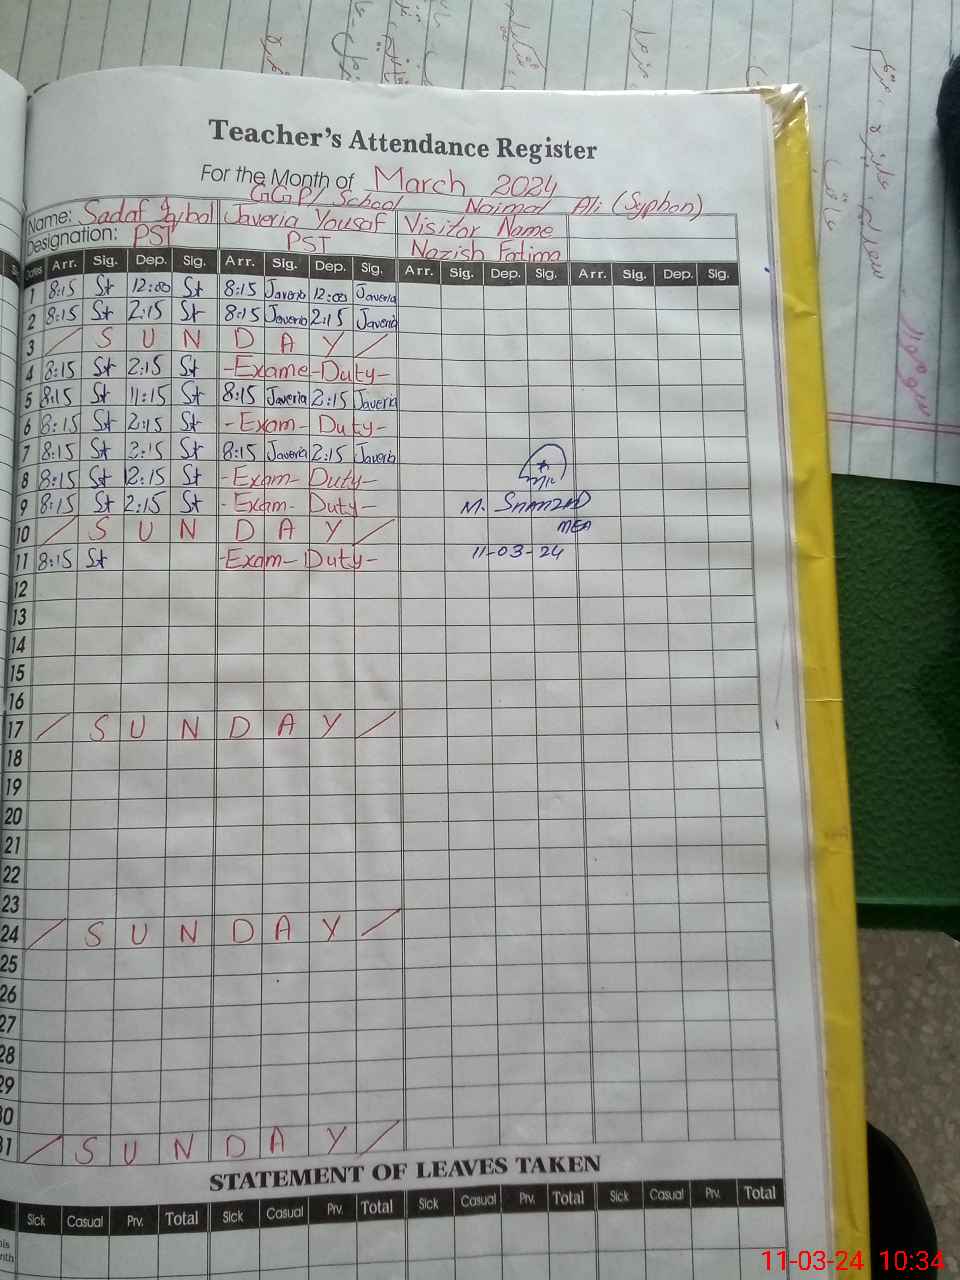 Teacher's Attendance Register
For the Month of March 2024
GGP/ School Naimal Ali (Syphon)
Name: Sadaf Iqbal Javeria Yousaf Visitor Name
Designation: PST PST Nazish Fatima
Dates Arr. Sig. Dep. Sig. Arr. Sig. Dep. Sig. Arr. Sig. Dep. Sig. Arr. Sig. Dep. Sig.
1 8:15 St 12:00 St 8:15 Javeria 12:00 Javeria
2 8:15 St 2:15 St 8:15 Javeria 2:15 Javeria
3 / S U N D A Y /
4 8:15 St 2:15 St -Exame-Duty-
5 8:15 St 11:15 St 8:15 Javeria 2:15 Javeria
6 8:15 St 2:15 St -Exam- Duty-
7 8:15 St 2:15 St 8:15 Javeria 2:15 Javeria
8 8:15 St 12:15 St -Exam- Duty-
9 8:15 St 2:15 St -Exam- Duty-
M.
10 / S U N D A Y /
MEA
11 8:15 St -Exam- Duty-
11-03-24
12
13
14
15
16
17 / S U N D A Y /
18
19
20
21
22
23
24 / S U N D A Y /
25
26
27
28
29
30
31 / S U N D A Y /
STATEMENT OF LEAVES TAKEN
Sick Casual Prv. Total Sick Casual Prv. Total Sick Casual Prv. Total Sick Casual Prv. Total
11-03-24 10:34